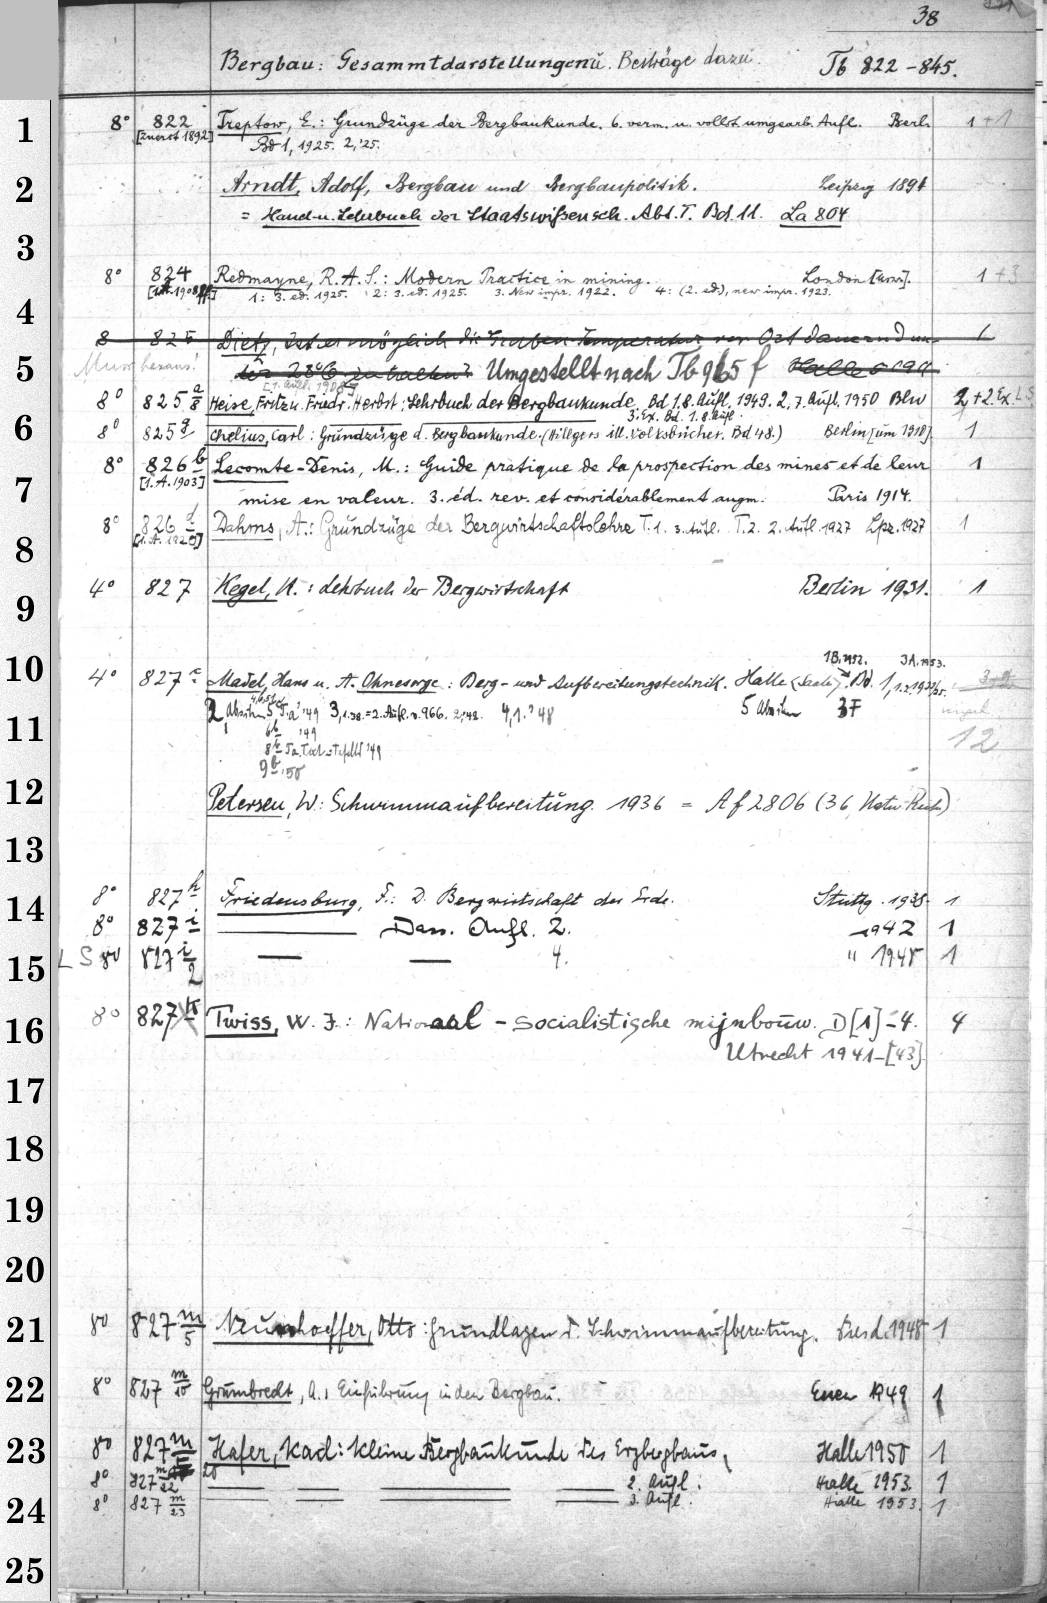 38
Bergbau: Gesammtdarstellungen u. Beiträge dazu. Tb 822-845.
1 8° 822 Treptow, E.: Grundzüge der Bergbaukunde. 6. verm. u. vollst. umgearb. Aufl. Berl. 1 + 1
[zuerst 1892] Bd 1, 1925. 2,'25.
2 Arndt, Adolf, Bergbau und Bergbaupolitik. Leipzig 1894
= Hand-u. Lehrbuch der Staatswißensch. Abt. I. Bd. 11. La 804
3
8° 824 Redmayne, R.A.S.: Modern Practice in mining. London [usw.]. 1 + 3
1: 3. ed. 1925. 2: 3. ed. 1925. 3. New impr. 1922. 4: (2. ed.), new impr. 1923.
4
8 825 Dietz, Ist es möglich die Gruben Temperatur vor Ort dauernd un- 1
5 ter 28°C zu halten? Umgestellt nach Tb 965 f Halle
[1. Aufl. 1908]
8° 825 a/8 Heise, Fritz u. Friedr. Herbst: Lehrbuch der Bergbaukunde. Bd 1.8. Aufl. 1949. 2,7. Aufl. 1950 Bln 2 + 2 Ex. LS
3. Ex. Bd. 1. 8. Aufl.
6 8° 825 g Chelius, Carl: Grundzüge d. Bergbaukunde. (Hillgers ill. Volksbücher. Bd 48.) Berlin [um 1910] 1
8° 826 b Lecomte-Denis, M.: Guide pratique de la prospection des mines et de leur 1
[1. A. 1903]
7 mise en valeur. 3. éd. rev. et considérablement augm. Paris 1914.
8° 826 d Dahms, A.: Grundzüge der Bergwirtschaftslehre T. 1. 3. Aufl. T. 2. 2. Aufl. 1927 Lpz. 1927 1
[1. A. 1920]
8
4° 827 Kegel, K.: Lehrbuch der Bergwirtschaft Berlin 1931. 1
9
10 1B. 1952. 3A. 1953.
4° 827 c Madel, Hans u. A. Ohnesorge: Berg- und Aufbereitungstechnik. Halle (Saale). Bd. 1,
11 2, '49 3, 1.38.=2. Aufl. v. 966. 2,'42. 4,1.'48 5
'49 12
'49
9 '50
12 Petersen, W: Schwimmaufbereitung. 1936 = Af 2806 (36,
13
8° 827 h Friedensburg, F.: D. Bergwirtschaft der Erde. Stuttg. 1938. 1
14 8° 827 i Dass. Aufl. 2. 1942 1
15 LS 8° 827 i/2 4. " 1948 1
16 8° 827 k Twiss, W. J.: Nationaal-socialistische mijnbouw. D [1]-4. 4
Utrecht 1941-[43]
17
18
19
20
21 8° 827 m/5 Neunhoeffer, Otto: Grundlagen d. Schwimmaufbereitung. Dresd. 1948 1
22 8° 827 m/10 Grumbrecht, A.: Einführung in den Bergbau. Essen 1949 1
23 8° 827 m/20 Hafer, Karl: Kleine Bergbaukunde des Erzbergbaus, Halle 1950 1
8° 827 m/22 2. Aufl. Halle 1953. 1
24 8° 827 m/23 3. Aufl. Halle 1953. 1
25